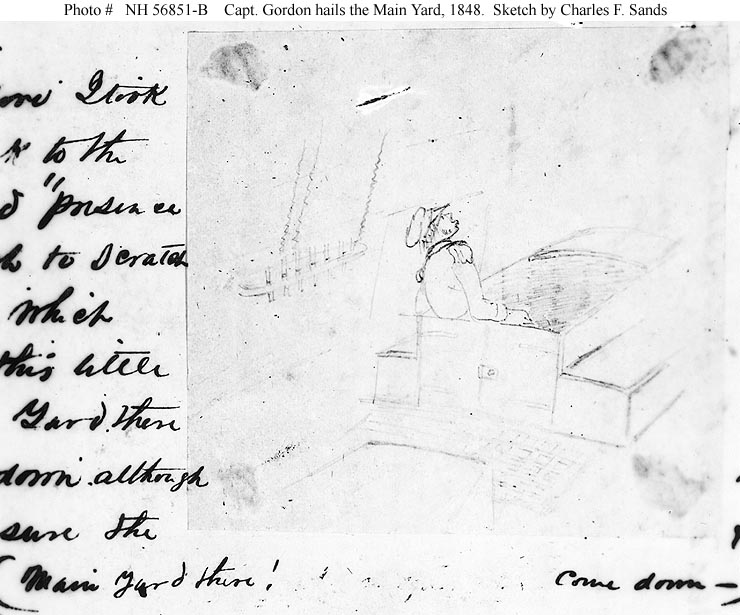 Photo # NH 56851-B Capt. Gordon hails the Main Yard, 1848. Sketch by Charles F. Sands
I took
to the
" presence
to scratch
which
this little
Yard there
down. although
sure the
( Main Yard there! Come down — )